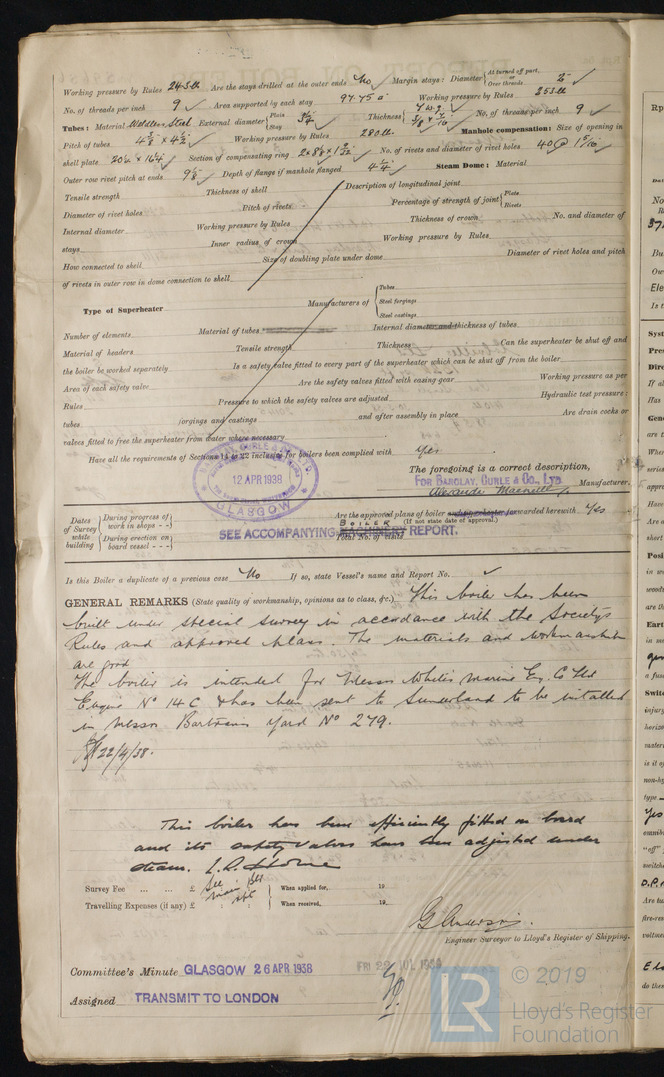 Working pressure by Rules 243 lb Are the stays drilled at the outer ends No Margin stays: Diameter { At turned off part, or Over threads 2"
No. of threads per inch 9 Area supported by each stay 97.75 Working pressure by Rules 253 lb
Tubes: Material Weldless Steel External diameter { Plain Stay Thickness No. of threads per inch 9
Pitch of tubes 4 3/8 x 4 1/2 Working pressure by Rules 280 lb Manhole compensation: Size of opening in
shell plate Section of compensating ring No. of rivets and diameter of rivet holes 40 @ 1 1/16
Outer row rivet pitch at ends 9 1/8 Depth of flange if manhole flanged 4 1/4 Steam Dome: Material
Tensile strength Thickness of shell Description of longitudinal joint
Diameter of rivet holes Pitch of rivets Percentage of strength of joint { Plate Rivets
Internal diameter Working pressure by Rules Thickness of crown No. and diameter of
stays Inner radius of crown Working pressure by Rules
How connected to shell Size of doubling plate under dome Diameter of rivet holes and pitch
of rivets in outer row in dome connection to shell
Type of Superheater Manufacturers of { Tubes Steel forgings Steel castings
Number of elements Material of tubes Internal diameter and thickness of tubes
Material of headers Tensile strength Thickness Can the superheater be shut off and
the boiler be worked separately Is a safety valve fitted to every part of the superheater which can be shut off from the boiler
Area of each safety valve Are the safety valves fitted with easing gear Working pressure as per
Rules Pressure to which the safety valves are adjusted Hydraulic test pressure:
tubes forgings and castings and after assembly in place Are drain cocks or
valves fitted to free the superheater from water where necessary
Have all the requirements of Sections 14 to 22 inclusive for boilers been complied with Yes
BARCLAY, CURLE & CO. LTD.
12 APR 1938
GLASGOW
The foregoing is a correct description,
FOR BARCLAY, CURLE & Co., LTD. Manufacturer.
Dates of Survey while building { During progress of work in shops - - } { During erection on board vessel - - - }
Are the approved plans of boiler forwarded herewith Yes
(If not state date of approval.)
BOILER
SEE ACCOMPANYING MACHINERY REPORT.
Total No. of visits
Is this Boiler a duplicate of a previous case No If so, state Vessel's name and Report No.
GENERAL REMARKS (State quality of workmanship, opinions as to class, &c.) This boiler has been
built under special survey in accordance with the Society's
Rules and approved plans. The materials and workmanship
are good
The boiler is intended for Messrs Whites Marine Eng. Co Ltd
Engine No 14 C & has been sent to Sunderland to be installed
in Messrs Bartrams Yard No 279.
22/4/38.
This boiler has been efficiently fitted on board
and its safety valves have been adjusted under
steam.
Survey Fee ... ... £ See main Blr When applied for, 19
Travelling Expenses (if any) £ Rpt When received, 19
G Anderson.
Engineer Surveyor to Lloyd's Register of Shipping.
Committee's Minute GLASGOW 26 APR 1938 FRI 22 JUL 1938
Assigned TRANSMIT TO LONDON
LR
© 2019
Lloyd's Register
Foundation